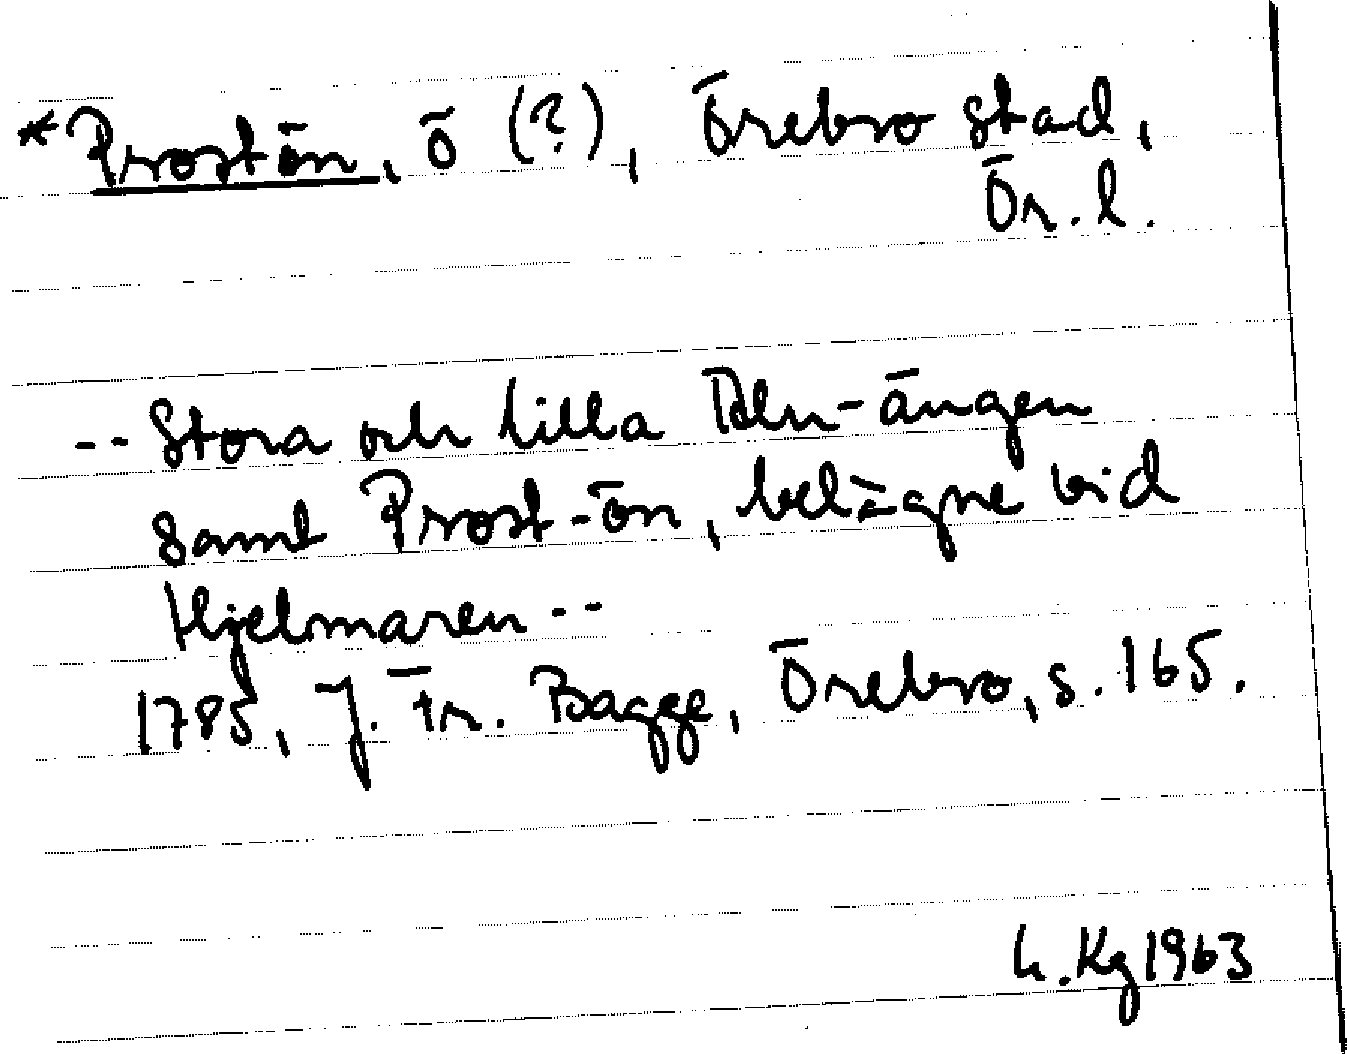 *Prostön, ö (?), Örebro stad,
Ör. l.
-- Stora och Lilla -ängen
samt Prost-ön, belägne vid
Hjelmaren --
1785, J. Fr. Bagge, Örebro, s. 165.
L. Kg 1963